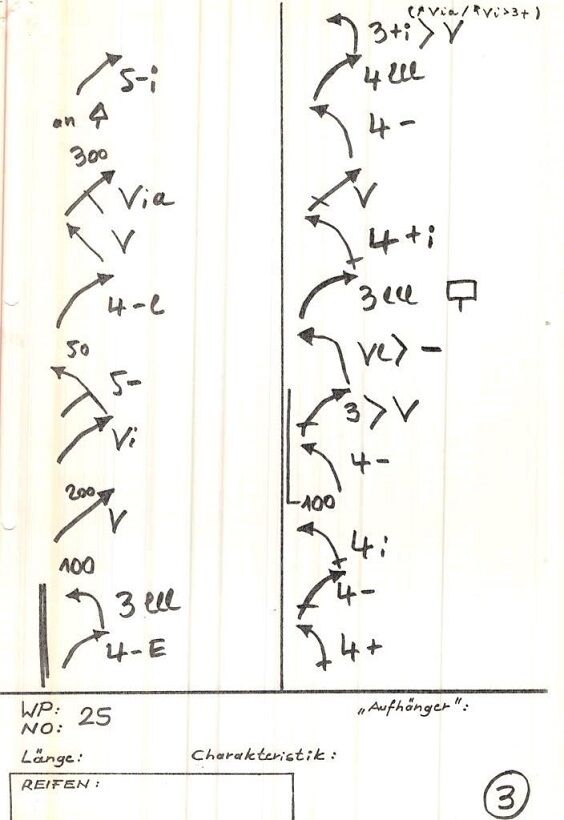 5-i
an
300
Via
V
4-l
50
5-
Vi
200
V
100
3 lll
4-E
(Via / Vi>3+)
3+i > V
4 lll
4 -
V
4 + i
3 lll
Vl > -
3 > V
4 -
100
4 i
4 -
4 +
WP: 25
NO:
„Aufhänger“:
Länge:
Charakteristik:
REIFEN:
3